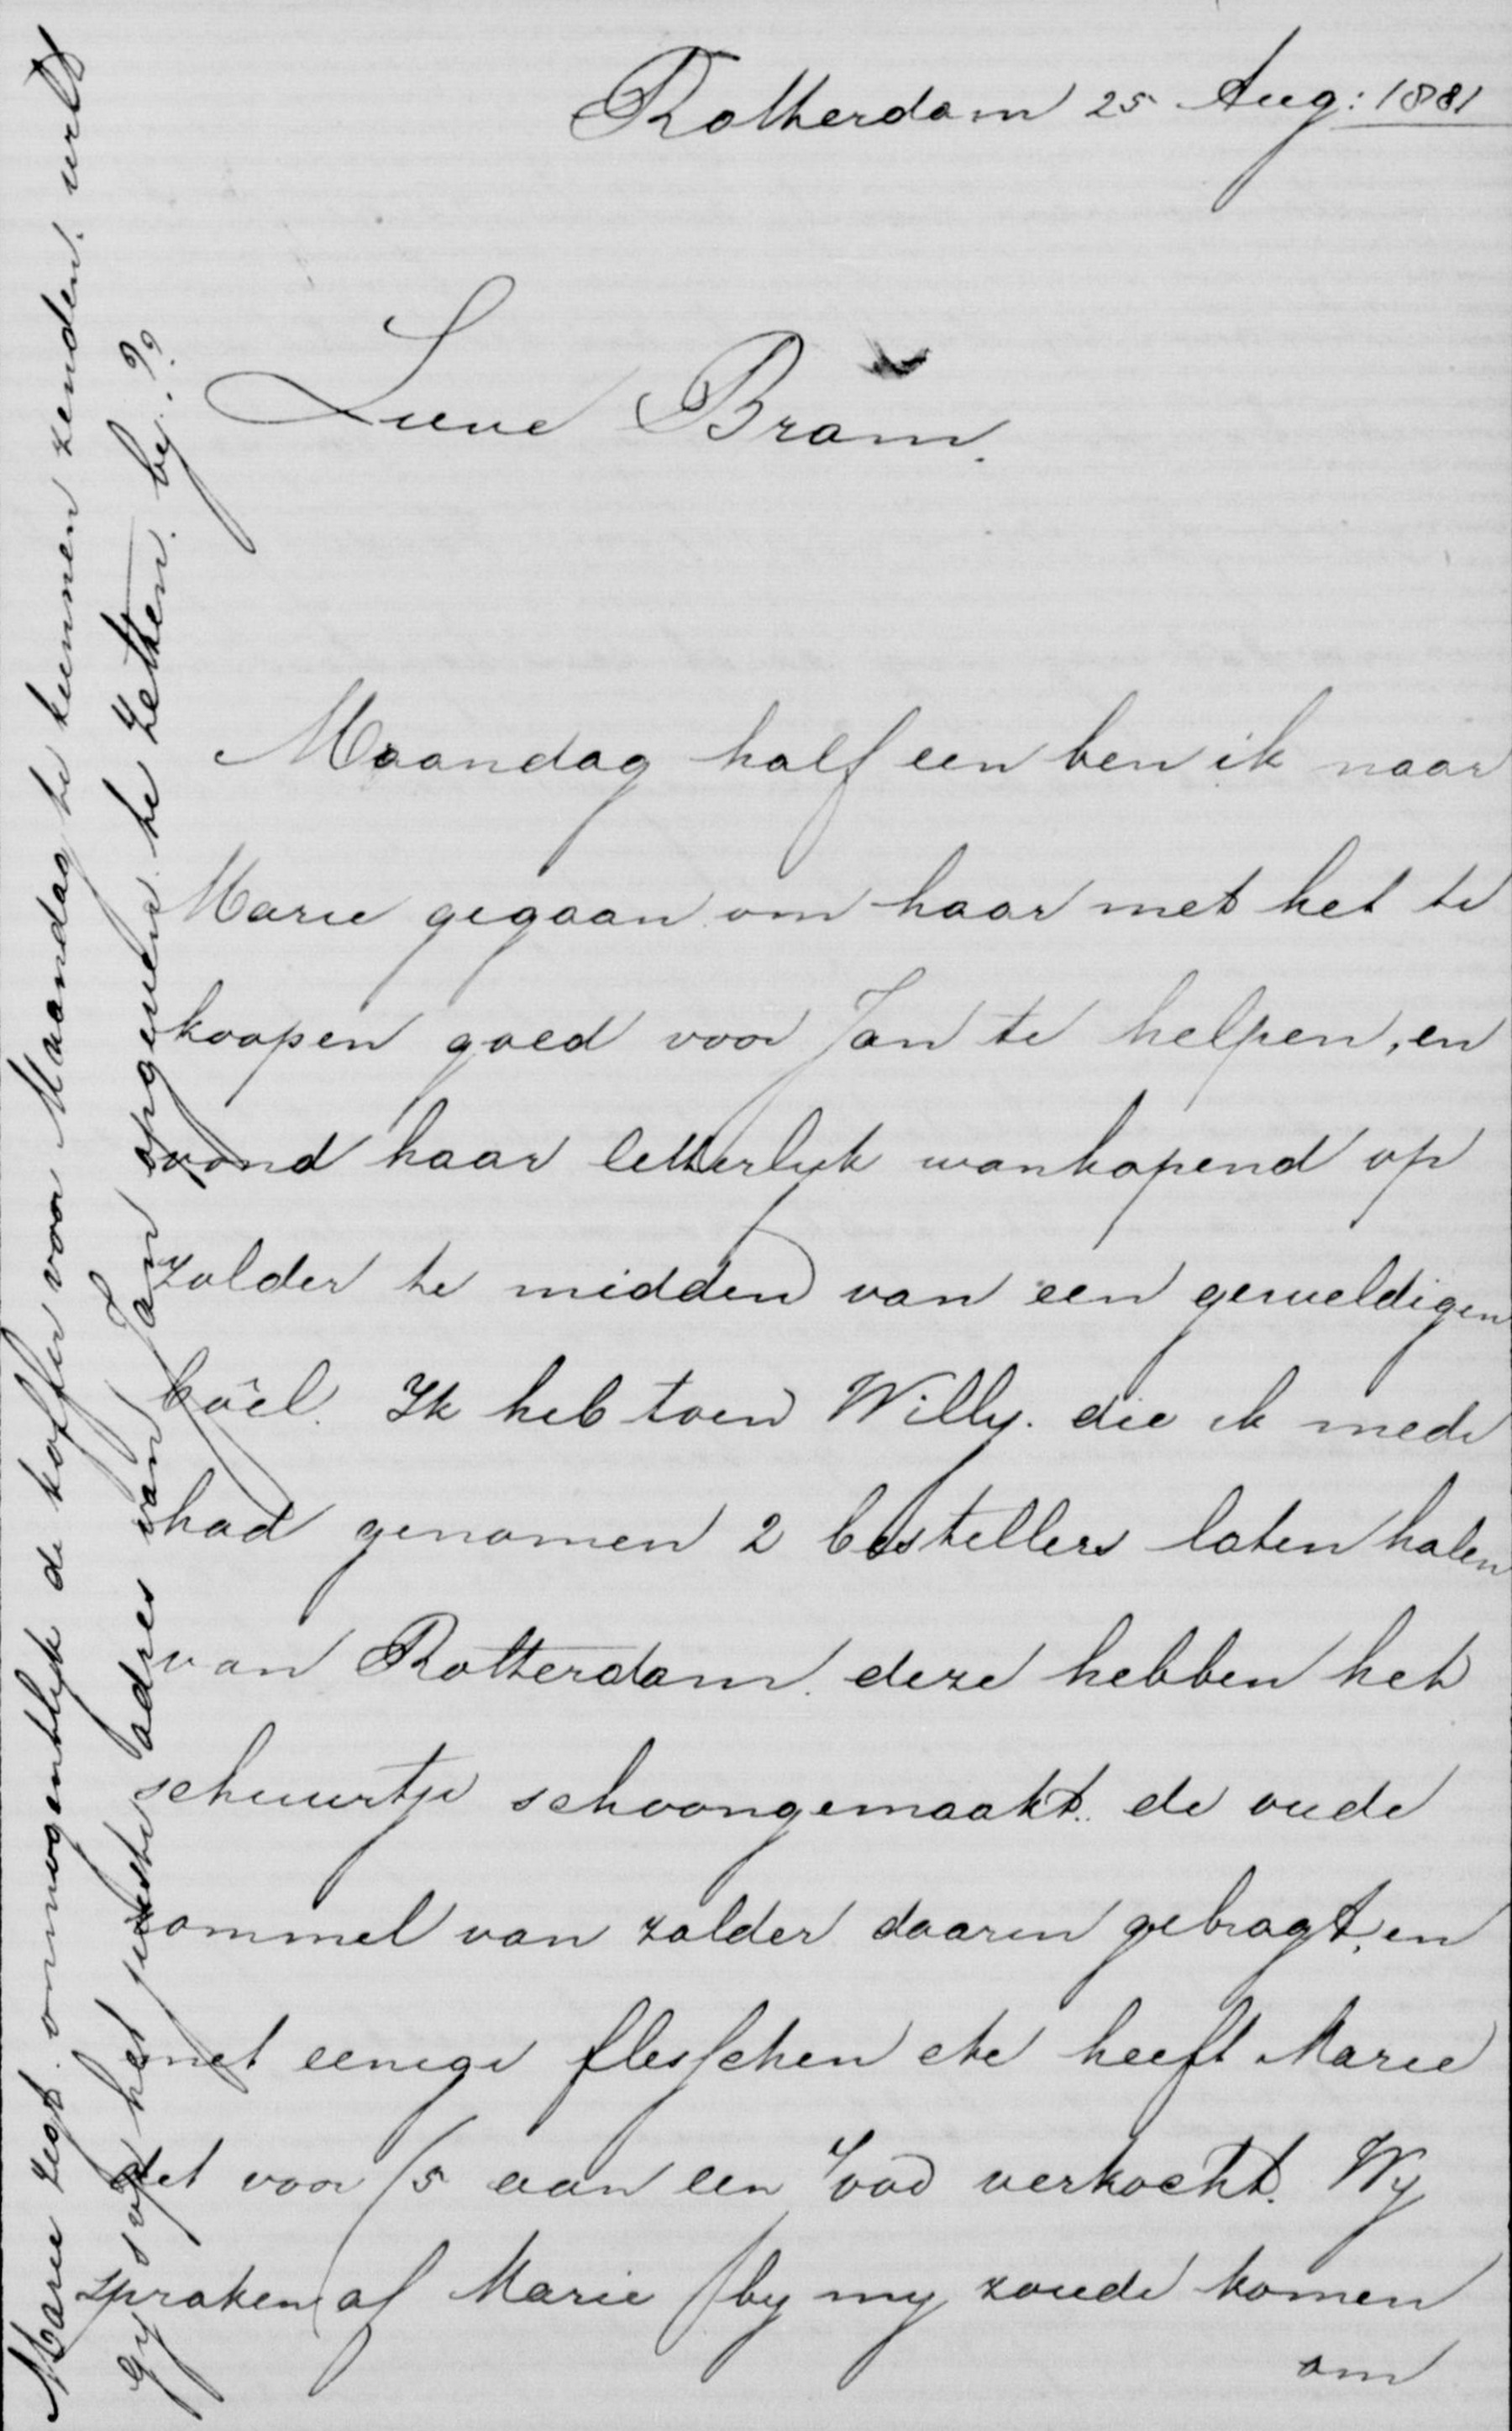 Rotterdam 25 Aug: 1881
Lieve Bram.
Maandag half een ben ik naar
Marie gegaan om haar met het te
koopen goed voor Jan te helpen, en
vond haar letterlyk wanhopend op
zolder te midden van een geweldigen
boêl. Ik heb toen Willy. die ik mede
had genomen 2 bestellers laten halen
van Rotterdam. deze hebben het
schuurtje schoongemaakt. de oude
rommel van zolder daarin gebragt, en
met eenige flesschen etc heeft Marie
het voor f5 aan een Jood verkocht. Wy
spraken af Marie by my zoude komen
om
Marie zegt onmogentlyk de koffer voor Maandag te kunnen zenden. wilt
gy svp het juiste adres van Jan opgeven. te Zetten. by.??